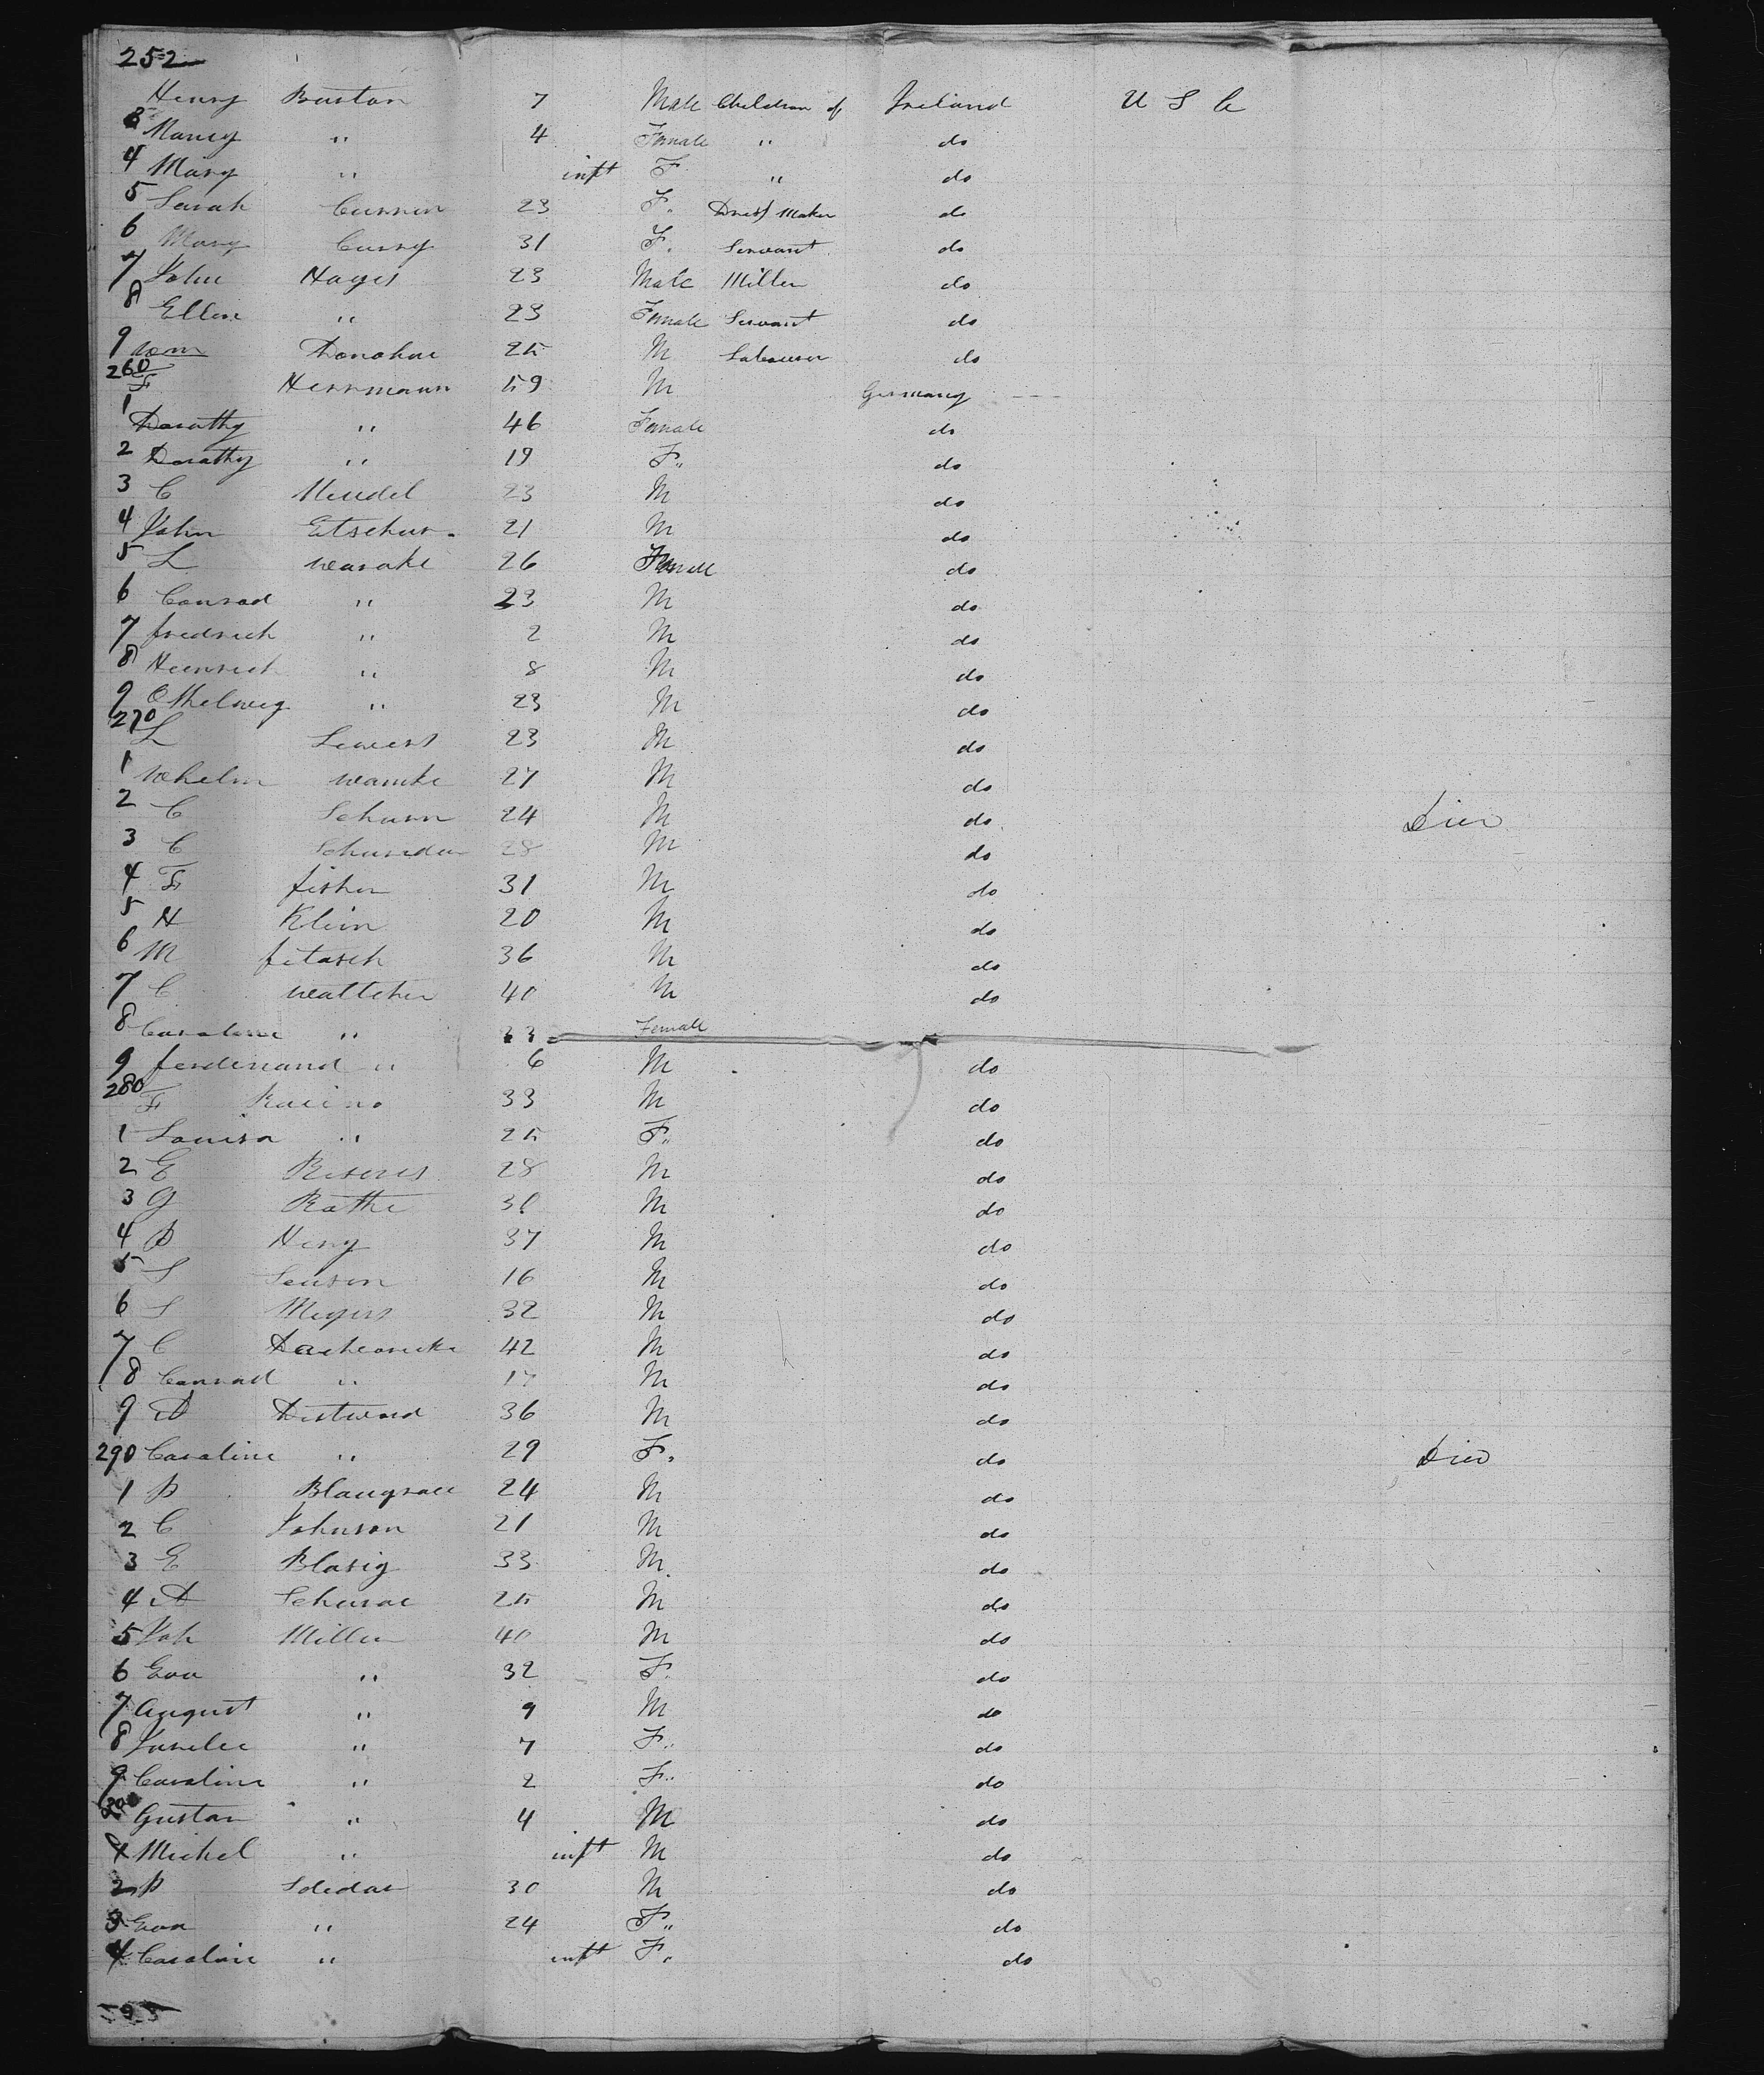 252
Henry Burton 7 Male Children of Ireland U S A
3 Nancy " 4 Female " do
4 Mary " inft F " do
5 Sarah Curren 23 F. Dress Maker do
6 Mary Curry 31 F. Servant do
7 John Hayes 23 Male Miller do
8 Ellen " 23 Female Servant do
9 Wm Donohue 25 M Labourer do
260 F Herrmann 59 M Germany
1 Dorathy " 46 Female do
2 Dorathy " 19 F" do
3 C Mendel 23 M do
4 John Etschur. 21 M do
5 L 26 Female do
6 Conrad " 23 M do
7 fredrich " 2 M do
8 Heinrich " 8 M do
9 " 23 M do
270 L Sewers 23 M do
1 Whelm Warnke 27 M do
2 C Schurn 24 M do Died
3 C 28 M do
4 F fisher 31 M do
5 H Klein 20 M do
6 M fitasch 36 M do
7 C Wattcher 40 M do
8 Caroline " 33 Female
9 ferdinand " 6 M do
280 F Racino 33 M do
1 Louisa " 25 F" do
2 E 28 M do
3 G Rathe 36 M do
4 P Heny 37 M do
5 S Senson 16 M do
6 S Meyers 32 M do
7 C 42 M do
8 Conrad " 17 M do
9 A Distward 36 M do
290 Caroline " 29 F. do Died
1 P Blaugrace 24 M do
2 C Johnson 21 M do
3 E Blasig 33 M do
4 A Schurae 25 M do
5 Joh Miller 40 M do
6 Eva " 32 F. do
7 August " 9 M do
8 " 7 F" do
9 Caroline " 2 F" do
300 Gustav " 4 M do
1 Michel " inft M do
2 P 30 M do
3 Eva " 24 F" do
4 Caroline " inft F. do